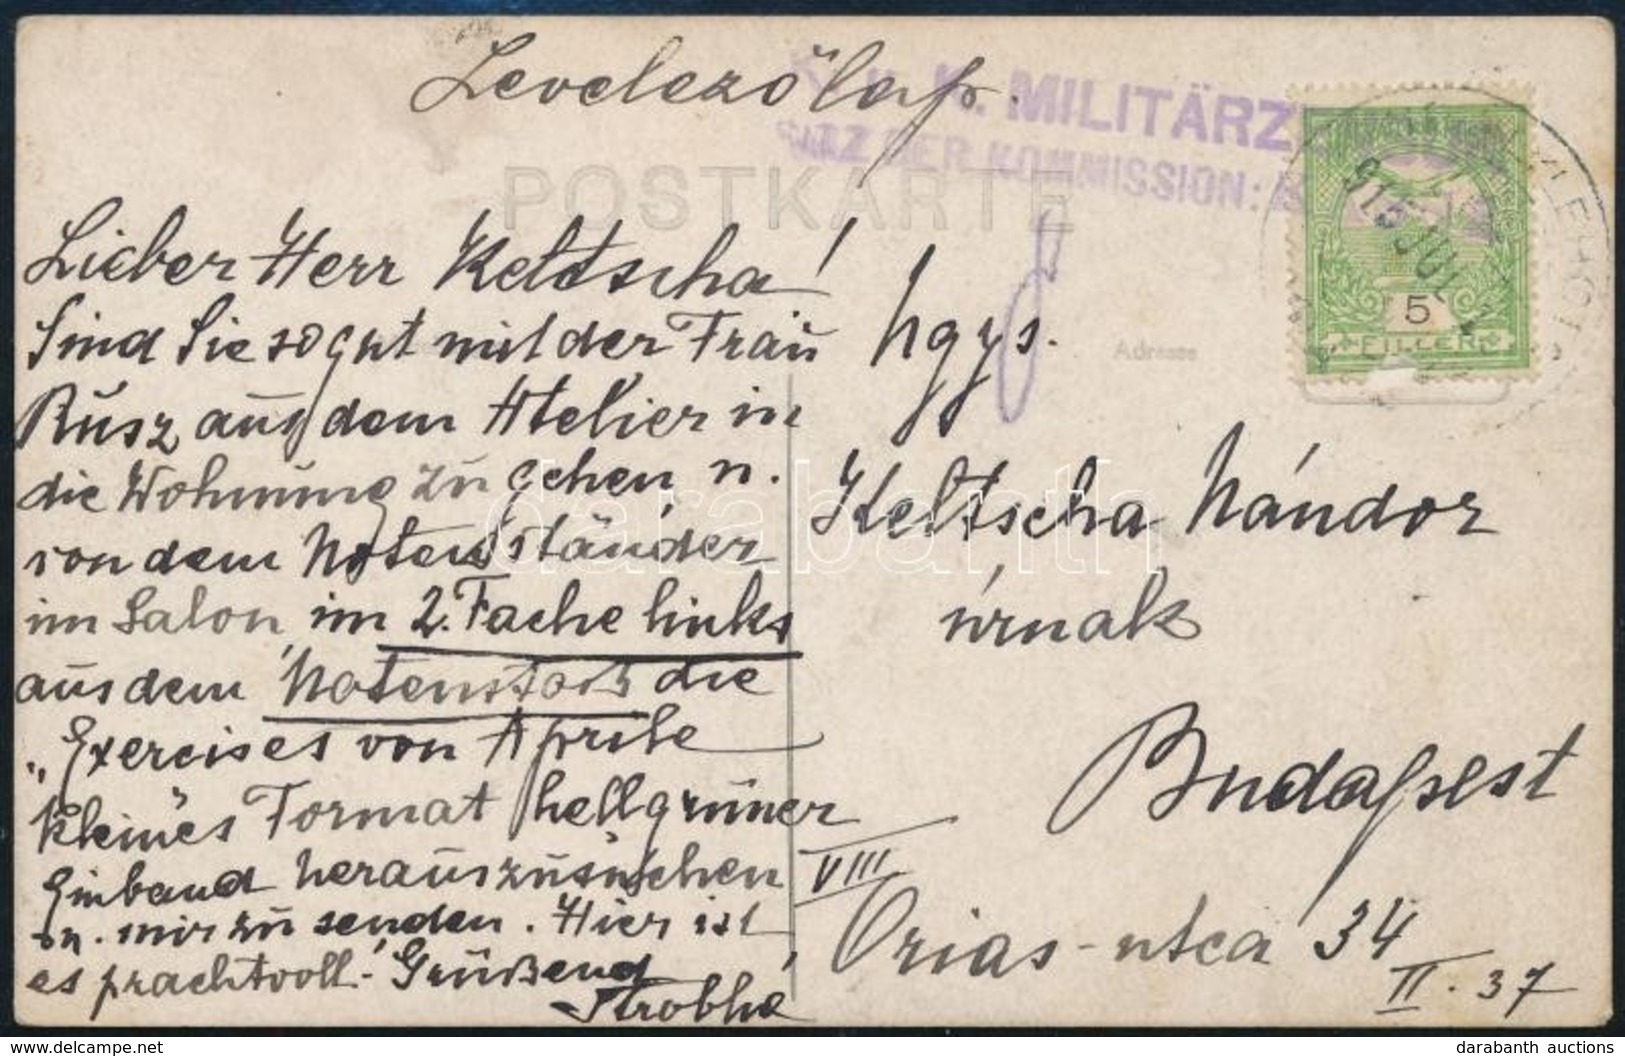 Levelezőlap.
u. K. MILITÄRZ
SITZ DER KOMMISSION:
POSTKARTE
915 JUL
5
FILLER
Adresse
Lieber Herr Keltscha!
Sind Sie so gut mit der Frau
Rusz aus dem Atelier in
die Wohnung zu gehen, u.
von dem Notenständer
im Salon, im 2. Fache links
aus dem Notenstock die
„Exercises von Aprile
kleines Format hellgrüner
Einband herauszusuchen
u. mir zu senden. Hier ist
es prachtvoll. Grüßend
Strobha
hgys.
Keltscha Nándor
úrnak
Budapest
VIII
Orias-utca 34
II. 37
darabanth
delcampe.net
darabanth auctions